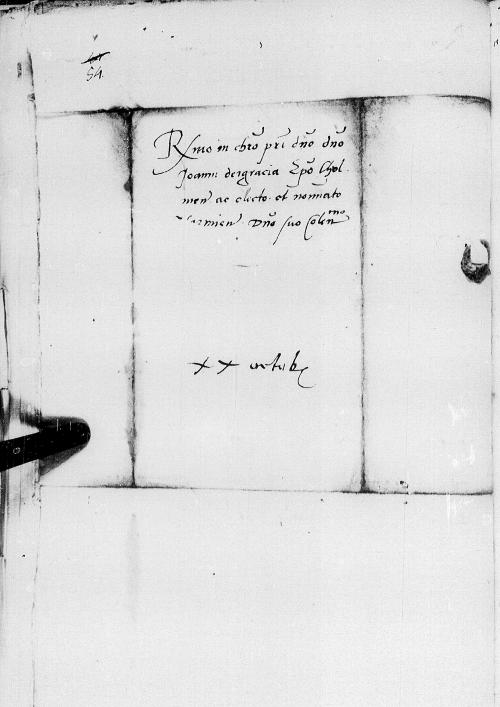 54.
Rmo in chro pri dno dno
Joanni dei gracia Epo Chol-
men ac electo et nominato
Varmien Dno suo Colenmo
xx octob